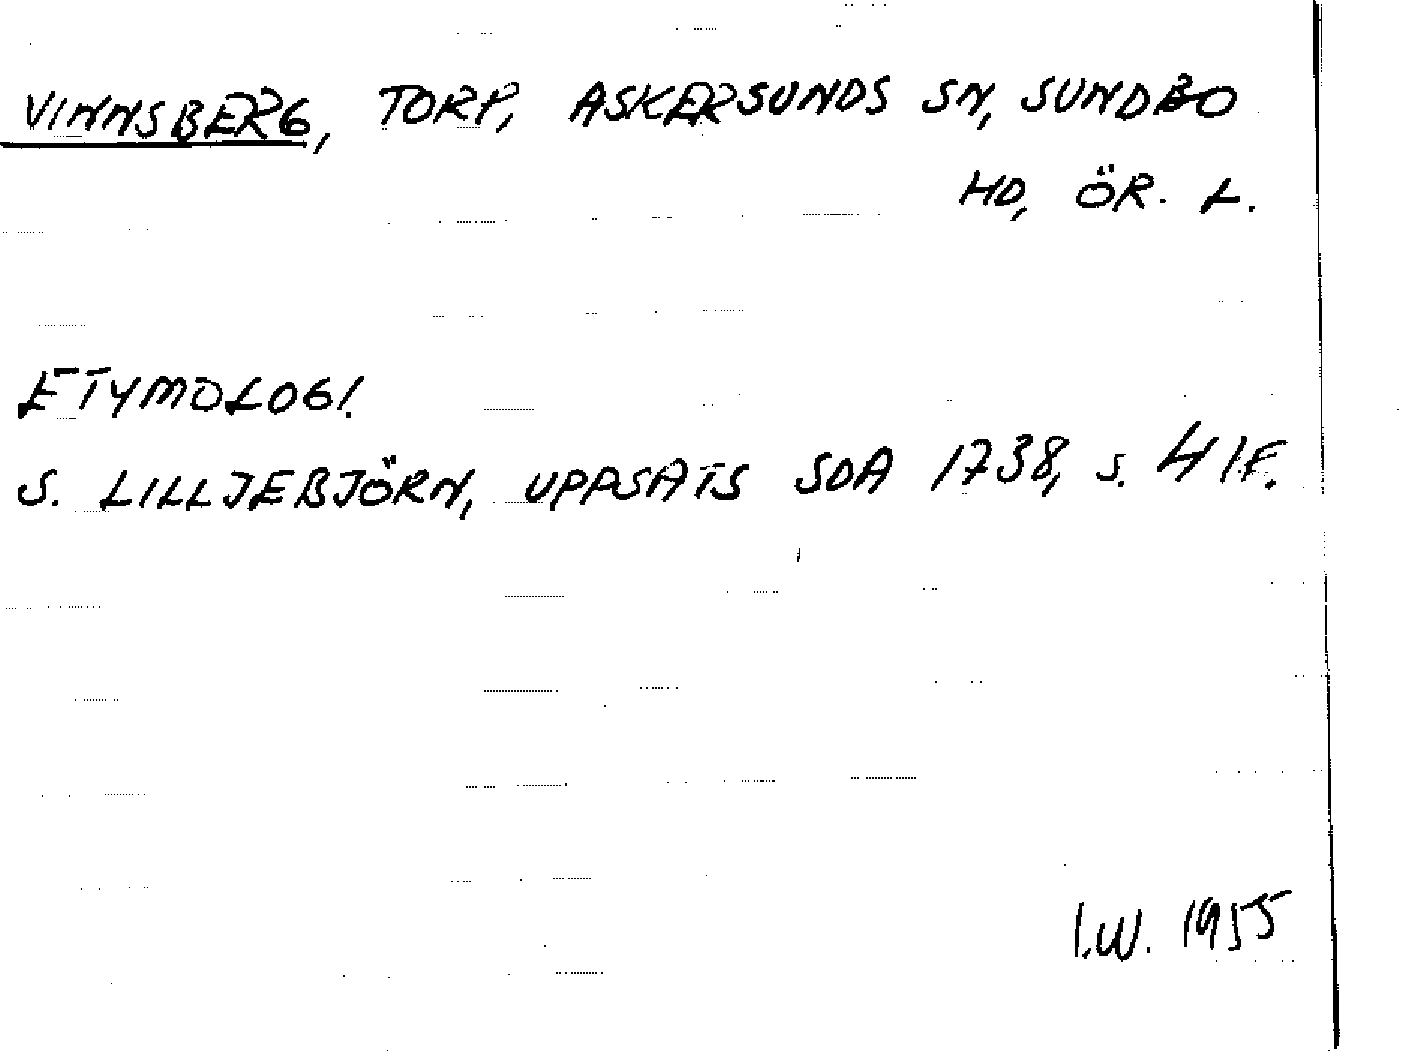 VINNSBERG, TORP, ASKERSUNDS SN, SUNDBO
HD, ÖR. L.
ETYMOLOGI.
S. LILLJEBJÖRN, UPPSATS SOA 1738, S. 41F.
I.W. 1955